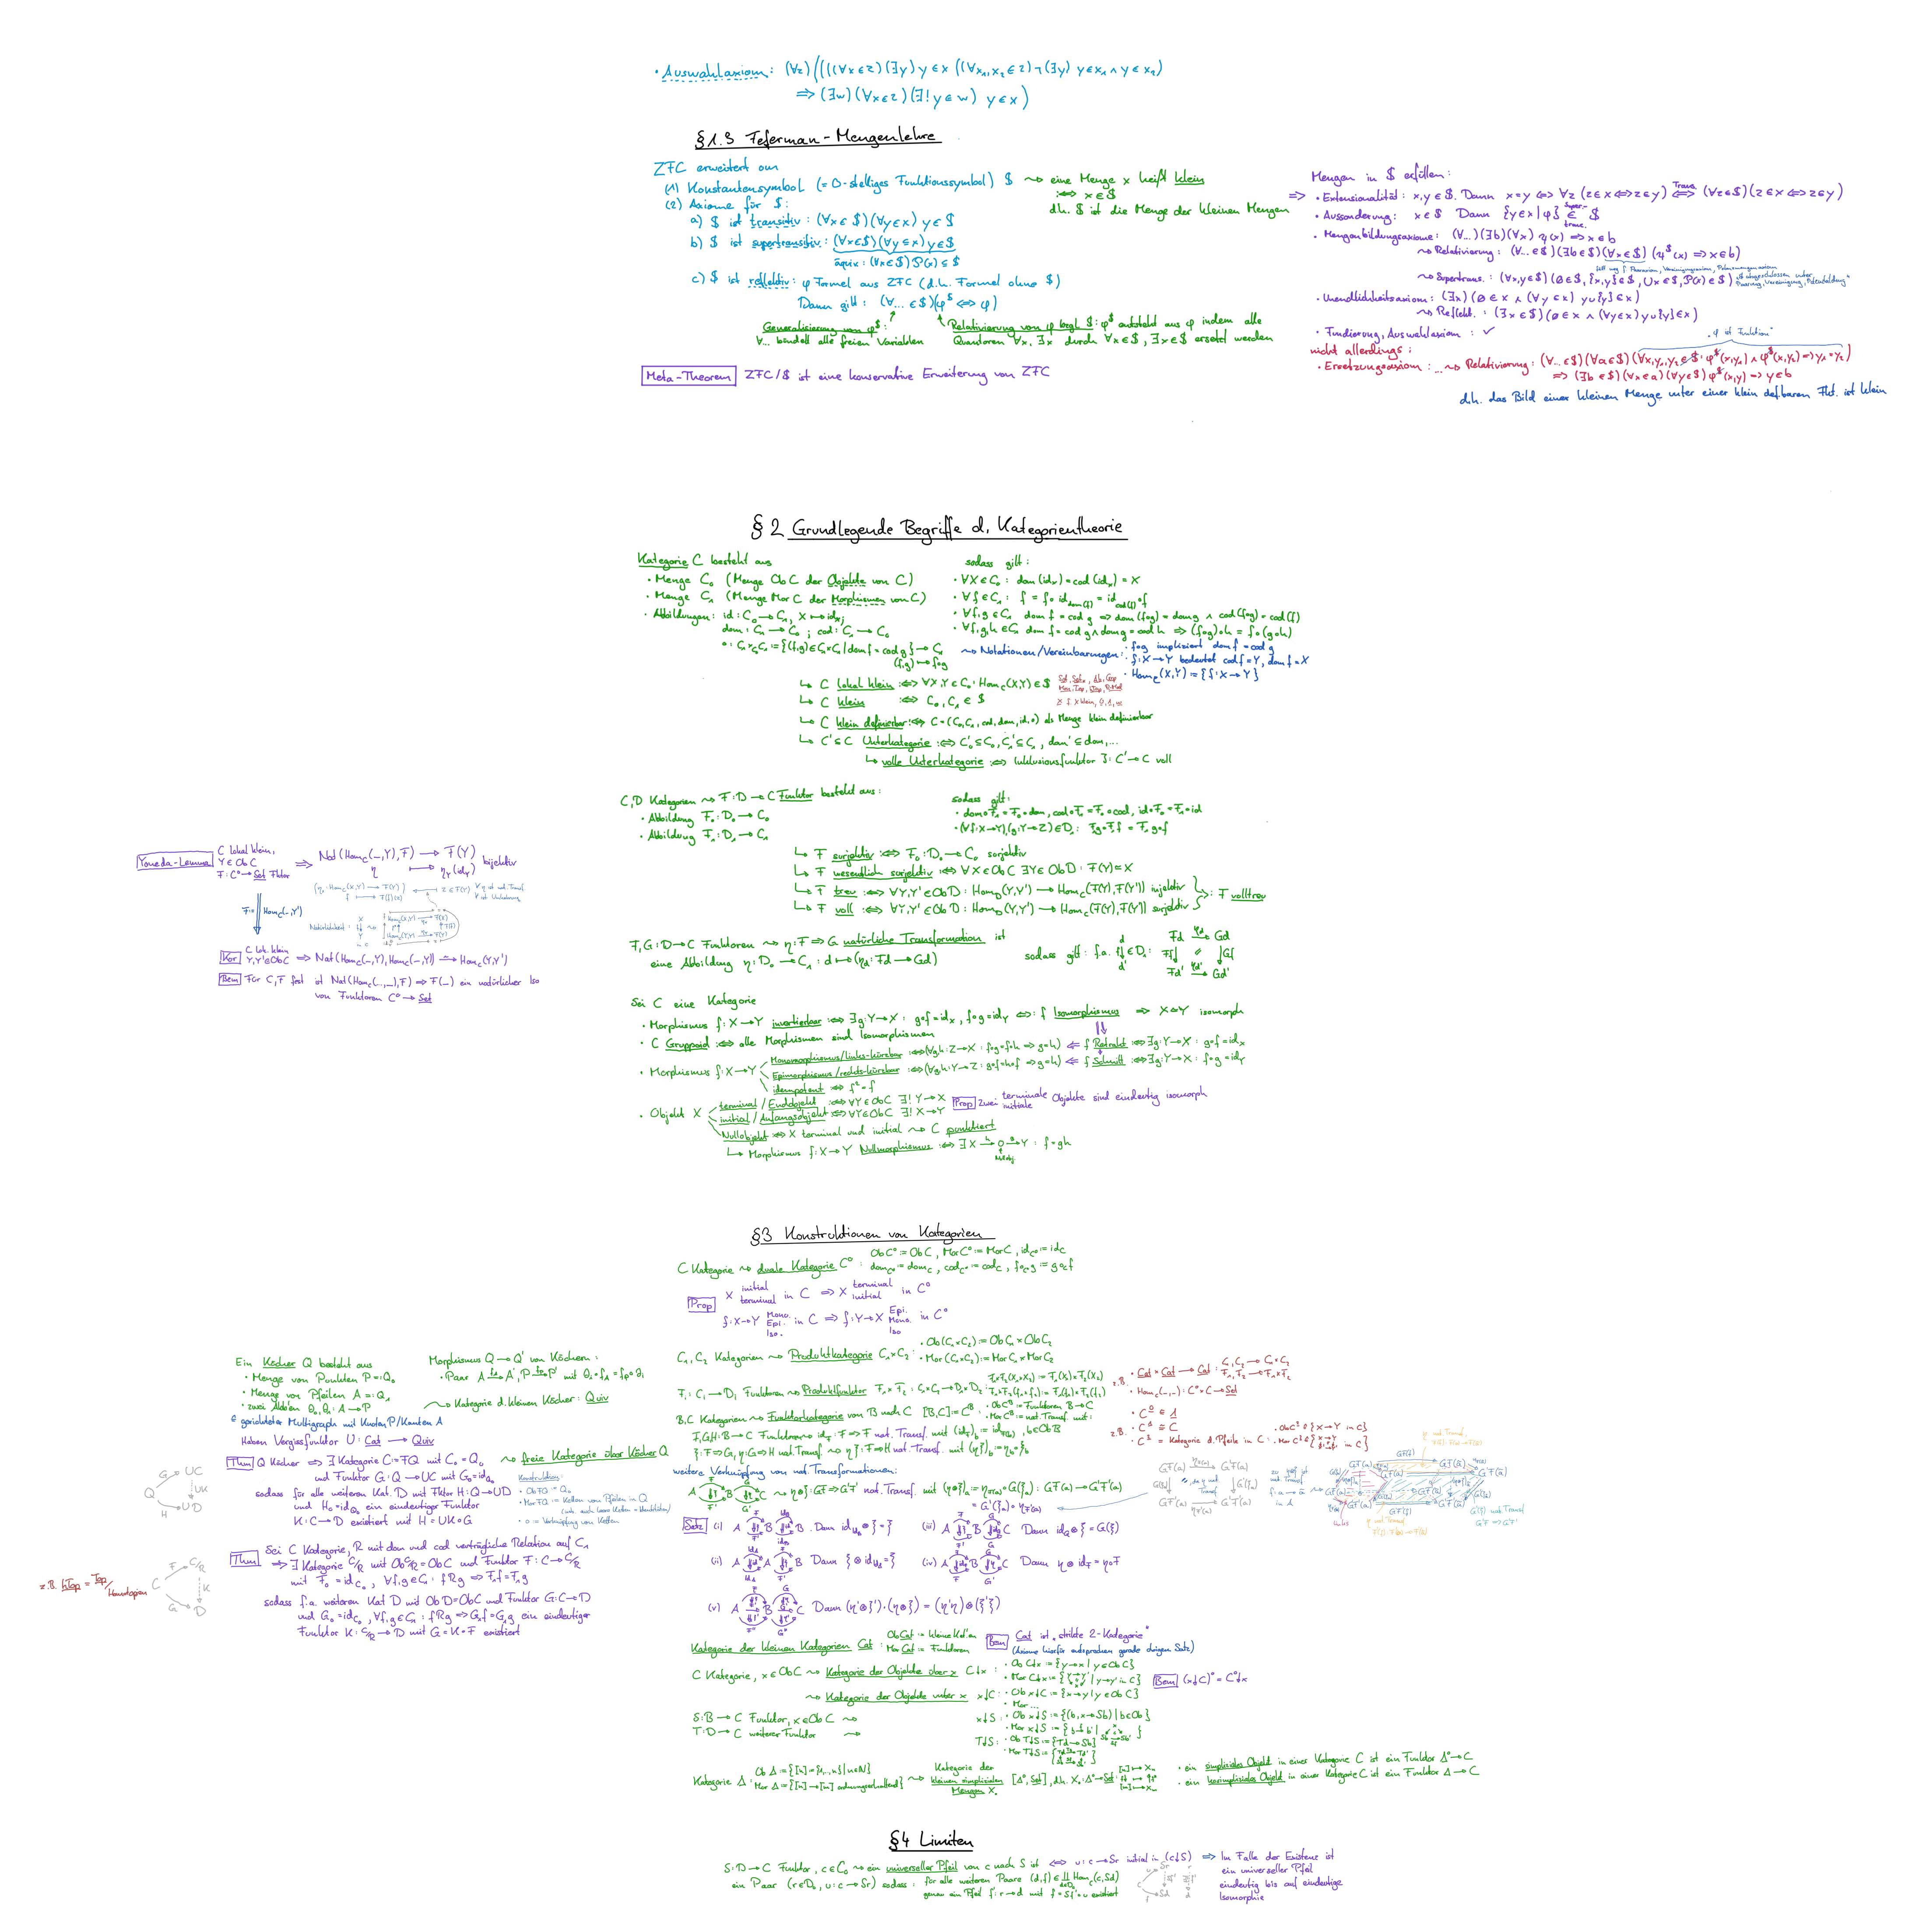 • Auswahlaxiom: (∀z)((((∀x∈z)(∃y) y∈x ((∀x₁,x₂∈z)¬(∃y) y∈x₁ ∧ y∈x₂)
⟹ (∃w)(∀x∈z)(∃!y∈w) y∈x)
§1.3 Feferman-Mengenlehre
ZFC erweitert um
(1) Konstantensymbol (= 0-stelliges Funktionssymbol) $ ⇝ eine Menge x heißt klein
:⟺ x∈$
d.h. $ ist die Menge der kleinen Mengen
(2) Axiome für $:
a) $ ist transitiv: (∀x∈$)(∀y∈x) y∈$
b) $ ist supertransitiv: (∀x∈$)(∀y⊆x) y∈$
äquiv: (∀x∈$) P(x) ⊆ $
c) $ ist reflektiv: φ Formel aus ZFC (d.h. Formel ohne $)
Dann gilt: (∀...∈$)(φ^$ ⟺ φ)
Generalisierung von φ^$:
∀... bindet alle freien Variablen
Relativierung von φ bzgl. $: φ^$ entsteht aus φ indem alle
Quantoren ∀x, ∃x durch ∀x∈$, ∃x∈$ ersetzt werden
Meta-Theorem ZFC/$ ist eine konservative Erweiterung von ZFC
⟹ Mengen in $ erfüllen:
• Extensionalität: x,y∈$. Dann x=y ⟺ ∀z (z∈x ⟺ z∈y) ⟺ (∀z∈$)(z∈x ⟺ z∈y)
• Aussonderung: x∈$ Dann {y∈x|φ} ∈ $
• Mengenbildungsaxiome: (∀...)(∃b)(∀x) ψ(x) ⟹ x∈b
⇝ Relativierung: (∀...∈$)(∃b∈$)(∀x∈$)(ψ^$(x) ⟹ x∈b)
⇝ Supertrans.: (∀x,y∈$)(∅∈$, {x,y}∈$, ∪x∈$, P(x)∈$)
• Unendlichkeitsaxiom: (∃x)(∅∈x ∧ (∀y∈x) y∪{y}∈x)
⇝ Reflekt.: (∃x∈$)(∅∈x ∧ (∀y∈x) y∪{y}∈x)
• Fundierung, Auswahlaxiom: ✓
nicht allerdings:
„φ ist Funktion"
• Ersetzungsaxiom: ... ⇝ Relativierung: (∀...∈$)(∀a∈$)(∀x,y₁,y₂∈$: φ^$(x,y₁) ∧ φ^$(x,y₂) ⟹ y₁=y₂)
⟹ (∃b∈$)(∀x∈a)(∀y∈$) φ^$(x,y) ⟹ y∈b
d.h. das Bild einer kleinen Menge unter einer klein def.baren Fkt. ist klein
§2 Grundlegende Begriffe d. Kategorientheorie
Kategorie C besteht aus
• Menge C₀ (Menge Ob C der Objekte von C)
• Menge C₁ (Menge Mor C der Morphismen von C)
• Abbildungen: id: C₀→C₁, X↦id_X;
dom: C₁→C₀; cod: C₁→C₀
∘: C₁×C₁ := {(f,g)∈C₁×C₁ | dom f = cod g} → C₁
(f,g)↦f∘g
sodass gilt:
• ∀X∈C₀: dom(id_X) = cod(id_X) = X
• ∀f∈C₁: f = f∘id_dom(f) = id_cod(f)∘f
• ∀f,g∈C₁ dom f = cod g ⟹ dom(f∘g) = dom g ∧ cod(f∘g) = cod(f)
• ∀f,g,h∈C₁ dom f = cod g ∧ dom g = cod h ⟹ (f∘g)∘h = f∘(g∘h)
⇝ Notationen/Vereinbarungen: • f∘g impliziert dom f = cod g
• f: X→Y bedeutet cod f = Y, dom f = X
• Hom_C(X,Y) := {f: X→Y}
↳ C lokal klein :⟺ ∀X,Y∈C₀: Hom_C(X,Y)∈$
↳ C klein :⟺ C₀, C₁ ∈ $
↳ C klein definierbar :⟺ C = (C₀, C₁, cod, dom, id, ∘) als Menge klein definierbar
↳ C'⊆C Unterkategorie :⟺ C'₀⊆C₀, C'₁⊆C₁, dom'⊆dom, ...
↳ volle Unterkategorie :⟺ Inklusionsfunktor J: C'→C voll
C,D Kategorien ⇝ F: D→C Funktor besteht aus:
• Abbildung F₀: D₀→C₀
• Abbildung F₁: D₁→C₁
sodass gilt:
• dom∘F₁ = F₀∘dom, cod∘F₁ = F₀∘cod, id∘F₀ = F₁∘id
• (∀f: X→Y),(g: Y→Z)∈D₁: F₁g∘F₁f = F₁ g∘f
↳ F surjektiv :⟺ F₀: D₀→C₀ surjektiv
↳ F wesentlich surjektiv :⟺ ∀X∈ObC ∃Y∈ObD: F(Y)≅X
↳ F treu :⟺ ∀Y,Y'∈ObD: Hom_D(Y,Y')→Hom_C(F(Y),F(Y')) injektiv
↳ F voll :⟺ ∀Y,Y'∈ObD: Hom_D(Y,Y')→Hom_C(F(Y),F(Y')) surjektiv
:⟺ F volltreu
F,G: D→C Funktoren ⇝ η: F⇒G natürliche Transformation ist
eine Abbildung η: D₀→C₁: d↦(η_d: Fd→Gd)
sodass gilt: f.a. d f↓ d' ∈D₁:
Fd → Gd
Fd' → Gd'
Sei C eine Kategorie
• Morphismus f: X→Y invertierbar :⟺ ∃g: Y→X: g∘f = id_X, f∘g = id_Y ⟺: f Isomorphismus ⟹ X≅Y isomorph
• C Gruppoid :⟺ alle Morphismen sind Isomorphismen
• Morphismus f: X→Y
Monomorphismus/links-kürzbar :⟺ (∀g,h: Z→X: f∘g = f∘h ⟹ g=h) ⟸ f Retrakt :⟺ ∃g: Y→X: g∘f = id_X
Epimorphismus/rechts-kürzbar :⟺ (∀g,h: Y→Z: g∘f = h∘f ⟹ g=h) ⟸ f Schnitt :⟺ ∃g: Y→X: f∘g = id_Y
idempotent :⟺ f² = f
• Objekt X
terminal/Endobjekt :⟺ ∀Y∈ObC ∃! Y→X
initial/Anfangsobjekt :⟺ ∀Y∈ObC ∃! X→Y
Prop Zwei terminale initiale Objekte sind eindeutig isomorph
Nullobjekt :⟺ X terminal und initial ⇝ C punktiert
↳ Morphismus f: X→Y Nullmorphismus :⟺ ∃ X→0→Y: f = gh
Yoneda-Lemma C lokal klein, Y∈ObC F: C°→Set Fktor ⟹ Nat(Hom_C(–,Y),F) → F(Y) bijektiv
η ↦ η_Y(id_Y)
F:= Hom_C(–,Y')
Natürlichkeit:
Kor C lok. klein Y,Y'∈ObC ⟹ Nat(Hom_C(–,Y), Hom_C(–,Y')) → Hom_C(Y,Y')
Bem Für C,F fest ist Nat(Hom_C(..,_),F) ⇒ F(–) ein natürlicher Iso
von Funktoren C°→Set
§3 Konstruktionen von Kategorien
C Kategorie ⇝ duale Kategorie C°: Ob C° := Ob C, Mor C° := Mor C, id_C° := id_C
dom_C° := dom_C, cod_C° := cod_C, f∘_C° g := g∘_C f
Prop X initial terminal in C ⟹ X terminal initial in C°
f: X→Y Mono. Epi. Iso. in C ⟹ f: Y→X Epi. Mono. Iso in C°
C₁,C₂ Kategorien ⇝ Produktkategorie C₁×C₂: • Ob(C₁×C₂) := ObC₁×ObC₂
• Mor(C₁×C₂) := MorC₁×MorC₂
F_i: C_i→D_i Funktoren ⇝ Produktfunktor F₁×F₂: C₁×C₂→D₁×D₂: F₁×F₂(X₁×X₂) := F₁(X₁)×F₂(X₂)
F₁×F₂(f₁×f₂) := F₁(f₁)×F₂(f₂)
z.B. • Cat×Cat→Cat: C₁,C₂→C₁×C₂ F₁,F₂→F₁×F₂
• Hom_C(–,–): C°×C→Set
B,C Kategorien ⇝ Funktorkategorie von B nach C [B,C] := C^B: • Ob C^B := Funktoren B→C
• Mor C^B := nat. Transf. mit:
F,G,H: B→C Funktoren ⇝ id_F: F⇒F nat. Transf. mit (id_F)_b := id_F(b), b∈ObB
ξ: F⇒G, η: G⇒H nat. Transf. ⇝ ηξ: F⇒H nat. Transf. mit (ηξ)_b := η_b∘ξ_b
z.B. • C^0 ≅ 1
• C^1 ≅ C
• C^2 = Kategorie d. Pfeile in C: • Ob C^2 ≅ {X→Y in C}
weitere Verknüpfung von nat. Transformationen:
⇝ η⊗ξ: GF⇒G'F' nat. Transf. mit (η⊗ξ)_a := η_F'(a)∘G(ξ_a): GF(a)→G'F'(a)
= G'(ξ_a)∘η_F(a)
Satz (i) A B B. Dann id_U_B⊗ξ = ξ
(iii) A B C Dann id_G⊗ξ = G(ξ)
(ii) A A B Dann ξ⊗id_U_A = ξ
(iv) A B C Dann η⊗id_F = η∘F
(v) A B C Dann (η'⊗ξ')·(η⊗ξ) = (η'η)⊗(ξ'ξ)
Kategorie der kleinen Kategorien Cat: Ob Cat := kleine Kat'en
Mor Cat := Funktoren
Bem Cat ist „strikte 2-Kategorie"
(Axiome hierfür entsprechen gerade obigen Satz)
C Kategorie, x∈ObC ⇝ Kategorie der Objekte über x C↓x: • Ob C↓x := {y→x | y∈ObC}
Bem (x↓C)° = C°↓x
⇝ Kategorie der Objekte unter x x↓C: • Ob x↓C := {x→y | y∈Ob C}
• Mor ...
S: B→C Funktor, x∈Ob C ⇝ x↓S: • Ob x↓S := {(b, x→Sb) | b∈Ob}
T: D→C weiterer Funktor ⇝ T↓S: • Ob T↓S := {Td→Sb}
Kategorie Δ: Ob Δ := {[n] = {1,...,n} | n∈N}
Mor Δ := {[n]→[m] ordnungserhaltend}
⇝ Kategorie der kleinen simplizialen Mengen X. [Δ°, Set], d.h. X.: Δ°→Set:
• ein simpliziales Objekt in einer Kategorie C ist ein Funktor Δ°→C
• ein kosimpliziales Objekt in einer Kategorie C ist ein Funktor Δ→C
Ein Köcher Q besteht aus
• Menge von Punkten P =: Q₀
• Menge von Pfeilen A =: Q₁
• zwei Abb'en ∂₀,∂₁: A→P
≙ gerichteter Multigraph mit Knoten P/Kanten A
Morphismus Q→Q' von Köchern:
• Paar A→A', P→P' mit ∂_i∘f_A = f_P∘∂_i
⇝ Kategorie d. kleinen Köcher: Quiv
Haben Vergissfunktor U: Cat → Quiv
Thm Q Köcher ⟹ ∃ Kategorie C := FQ mit C₀ = Q₀ ⇝ freie Kategorie über Köcher Q
und Funktor G: Q→UC mit G₀ = id_Q₀
sodass für alle weiteren Kat. D mit Fktor H: Q→UD
und H₀ = id_Q₀ ein eindeutiger Funktor
K: C→D existiert mit H = UK∘G
Konstruktion:
• Ob FQ := Q₀
• Mor FQ := Ketten von Pfeilen in Q
• ∘ := Verknüpfung von Ketten
Thm Sei C Kategorie, R mit dom und cod verträgliche Relation auf C₁
⟹ ∃ Kategorie C/R mit Ob C/R = Ob C und Funktor F: C→C/R
mit F₀ = id_C₀, ∀f,g∈C₁: fRg ⟹ F₁f = F₁g
sodass f.a. weiteren Kat D mit Ob D = Ob C und Funktor G: C→D
und G₀ = id_C₀, ∀f,g∈C₁: fRg ⟹ G₁f = G₁g ein eindeutiger
Funktor K: C/R→D mit G = K∘F existiert
z.B. hTop = Top/Homotopien
§4 Limiten
S: D→C Funktor, c∈C₀ ⇝ ein universeller Pfeil von c nach S ist ⟺ u: c→Sr initial in (c↓S) ⟹ Im Falle der Existenz ist
ein universeller Pfeil
eindeutig bis auf eindeutige
Isomorphie
ein Paar (r∈D₀, u: c→Sr) sodass: für alle weiteren Paare (d,f)∈∐ Hom_C(c,Sd)
genau ein Pfeil f': r→d mit f = Sf'∘u existiert